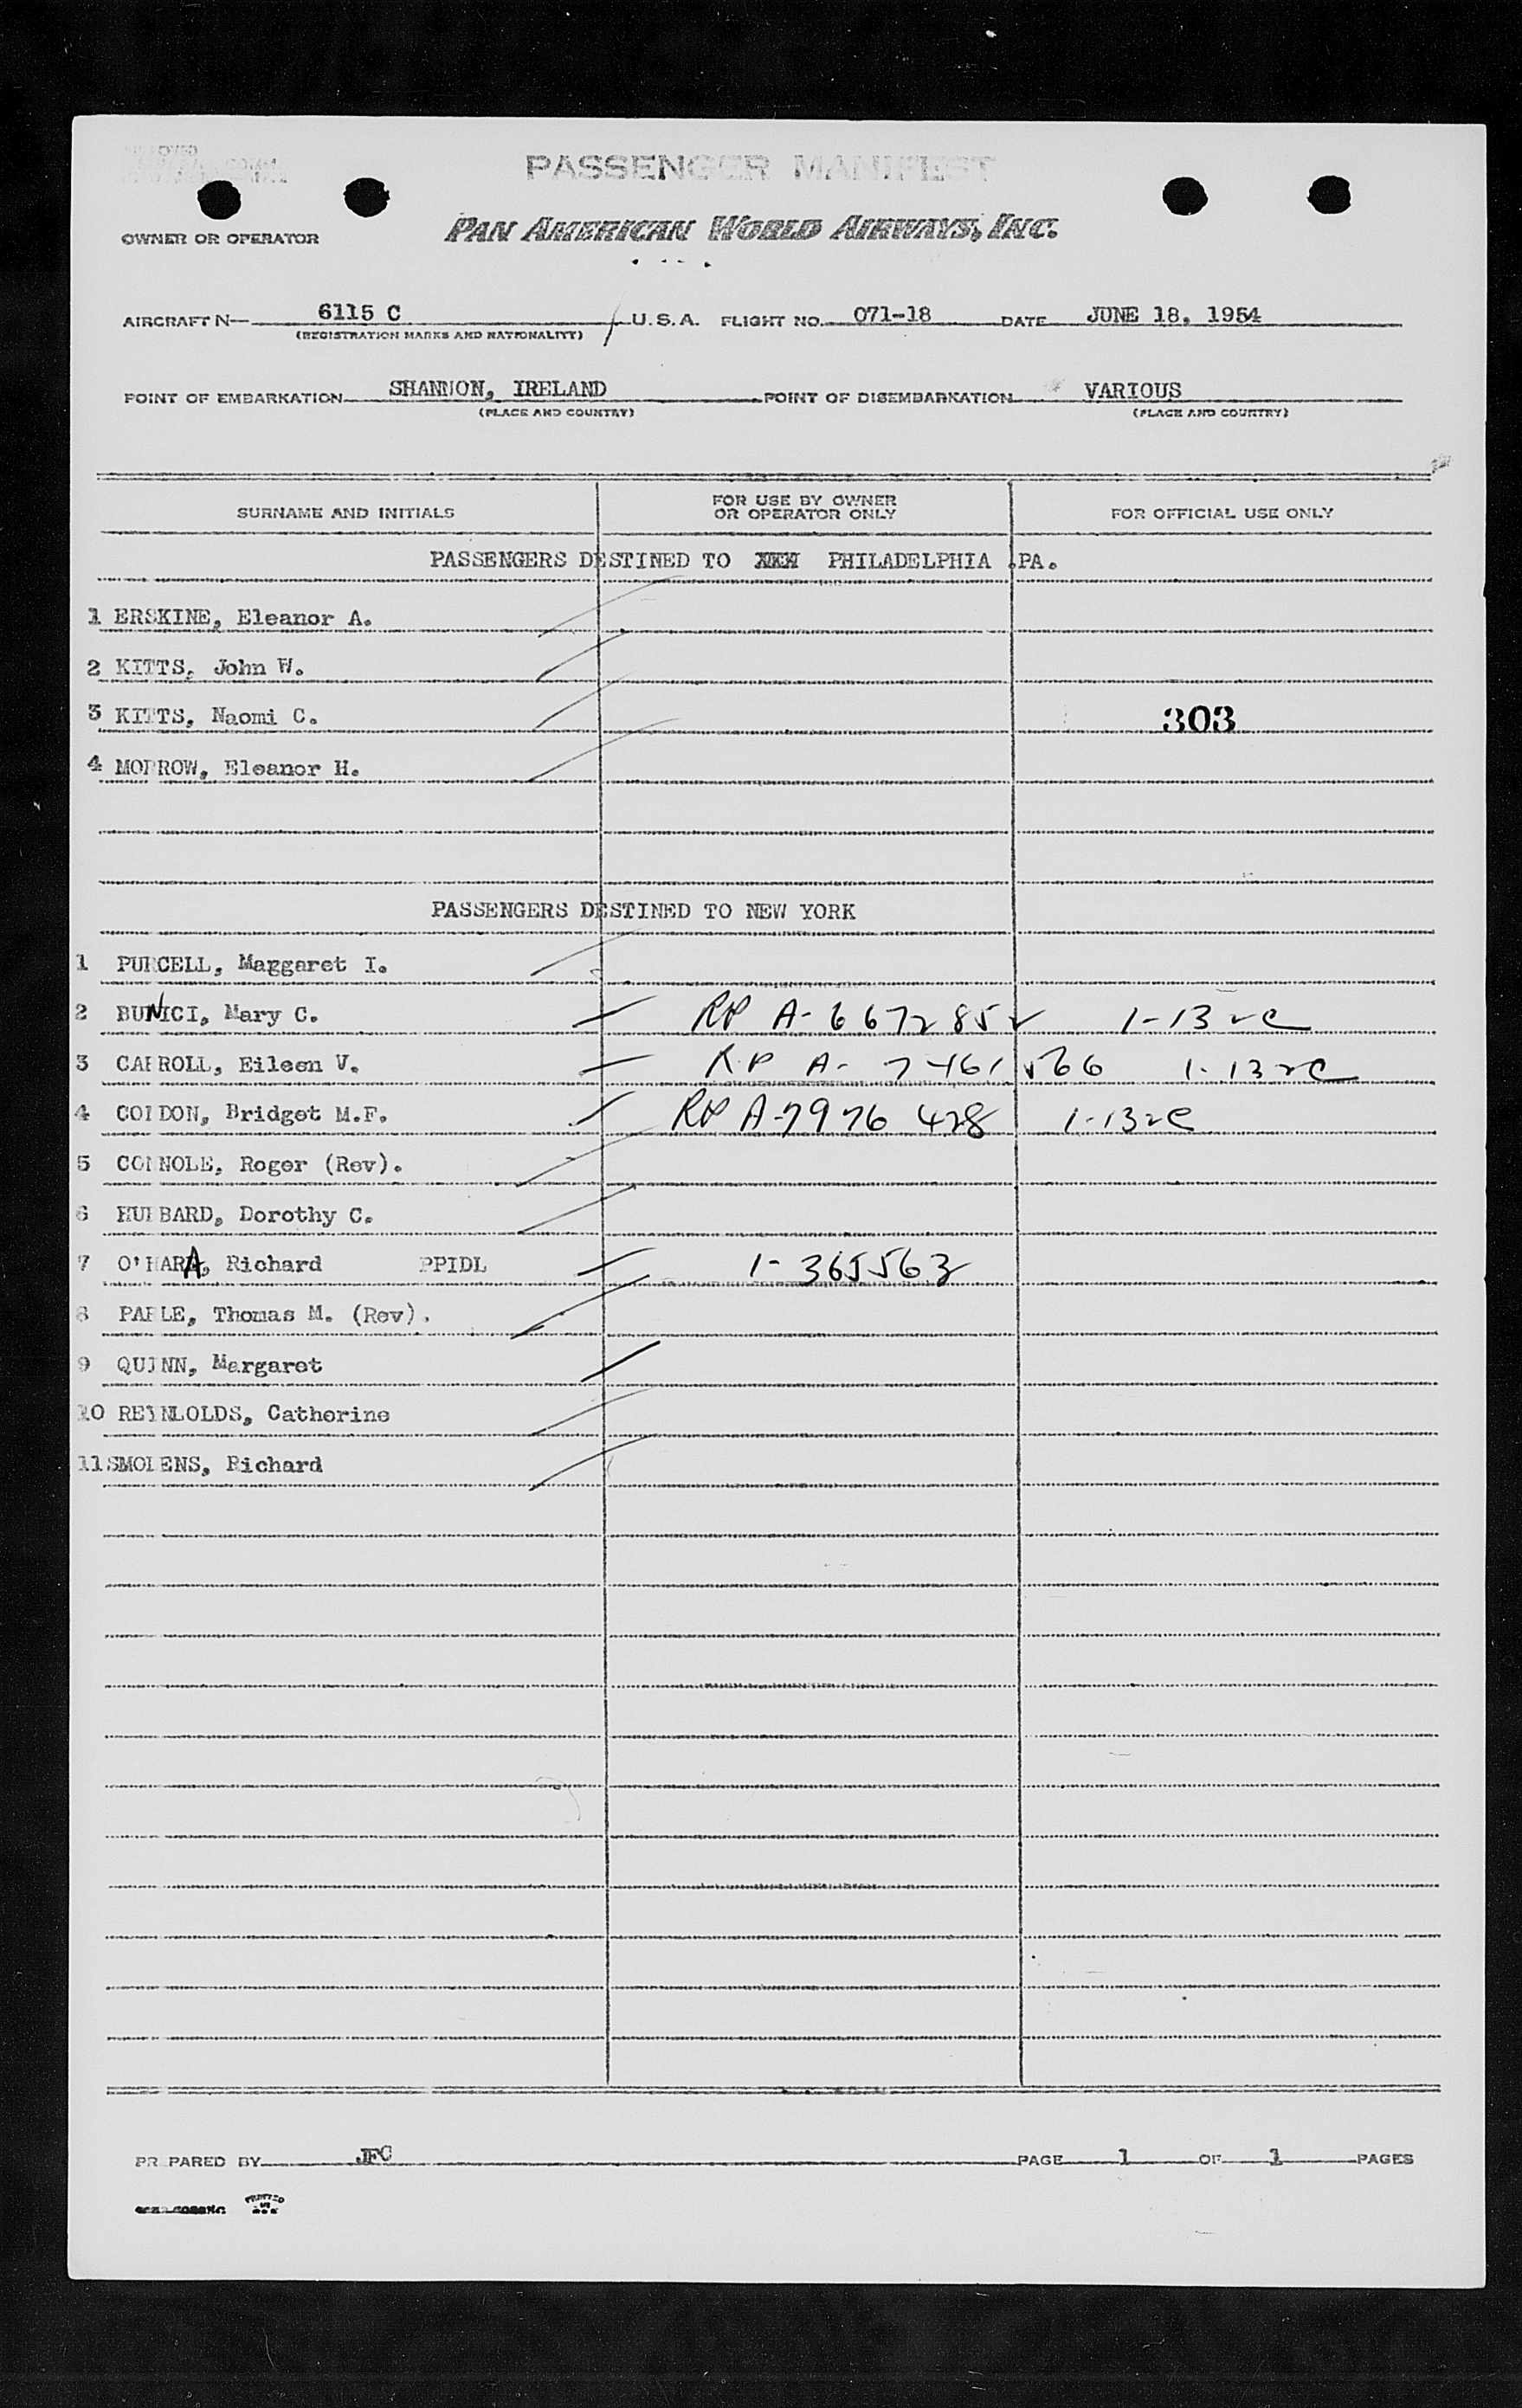 PASSENGER MANIFEST
OWNER OR OPERATOR PAN AMERICAN WORLD AIRWAYS, INC.
AIRCRAFT N— 6115 C / U.S.A. FLIGHT NO. 071-18 DATE JUNE 18, 1954
(REGISTRATION MARKS AND NATIONALITY)
POINT OF EMBARKATION SHANNON, IRELAND POINT OF DISEMBARKATION VARIOUS
(PLACE AND COUNTRY) (PLACE AND COUNTRY)
SURNAME AND INITIALS FOR USE BY OWNER OR OPERATOR ONLY FOR OFFICIAL USE ONLY
PASSENGERS DESTINED TO PHILADELPHIA PA.
1 ERSKINE, Eleanor A.
2 KITTS, John W.
3 KITTS, Naomi C. 303
4 MORROW, Eleanor H.
PASSENGERS DESTINED TO NEW YORK
1 PURCELL, Maggaret I.
2 BUNICI, Mary C. RP A-6672852 1-13 2C
3 CARROLL, Eileen V. RP A-7461566 1-13 2C
4 CONDON, Bridget M.F. RP A-7976 428 1-13 2C
5 CONNOLE, Roger (Rev).
6 HUBBARD, Dorothy C.
7 O'HARA, Richard PPIDL 1-365563
8 Thomas M. (Rev).
9 QUINN, Margaret
10 REYNLOLDS, Catherine
11 Richard
PREPARED BY JFC PAGE 1 OF 1 PAGES
PRINTED